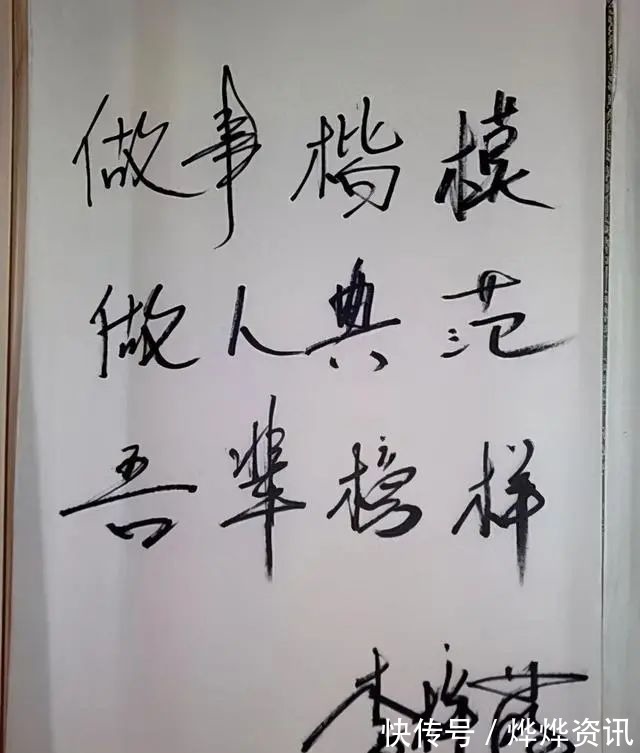 做事楷模
做人典范
吾辈榜样
快传号 / 烨烨资讯